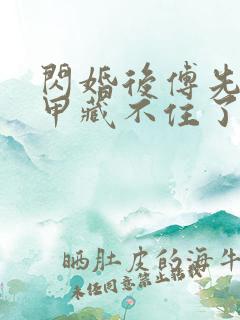 閃婚後傅先
甲藏不住了
晒肚皮的海牛
未经同意禁止转载